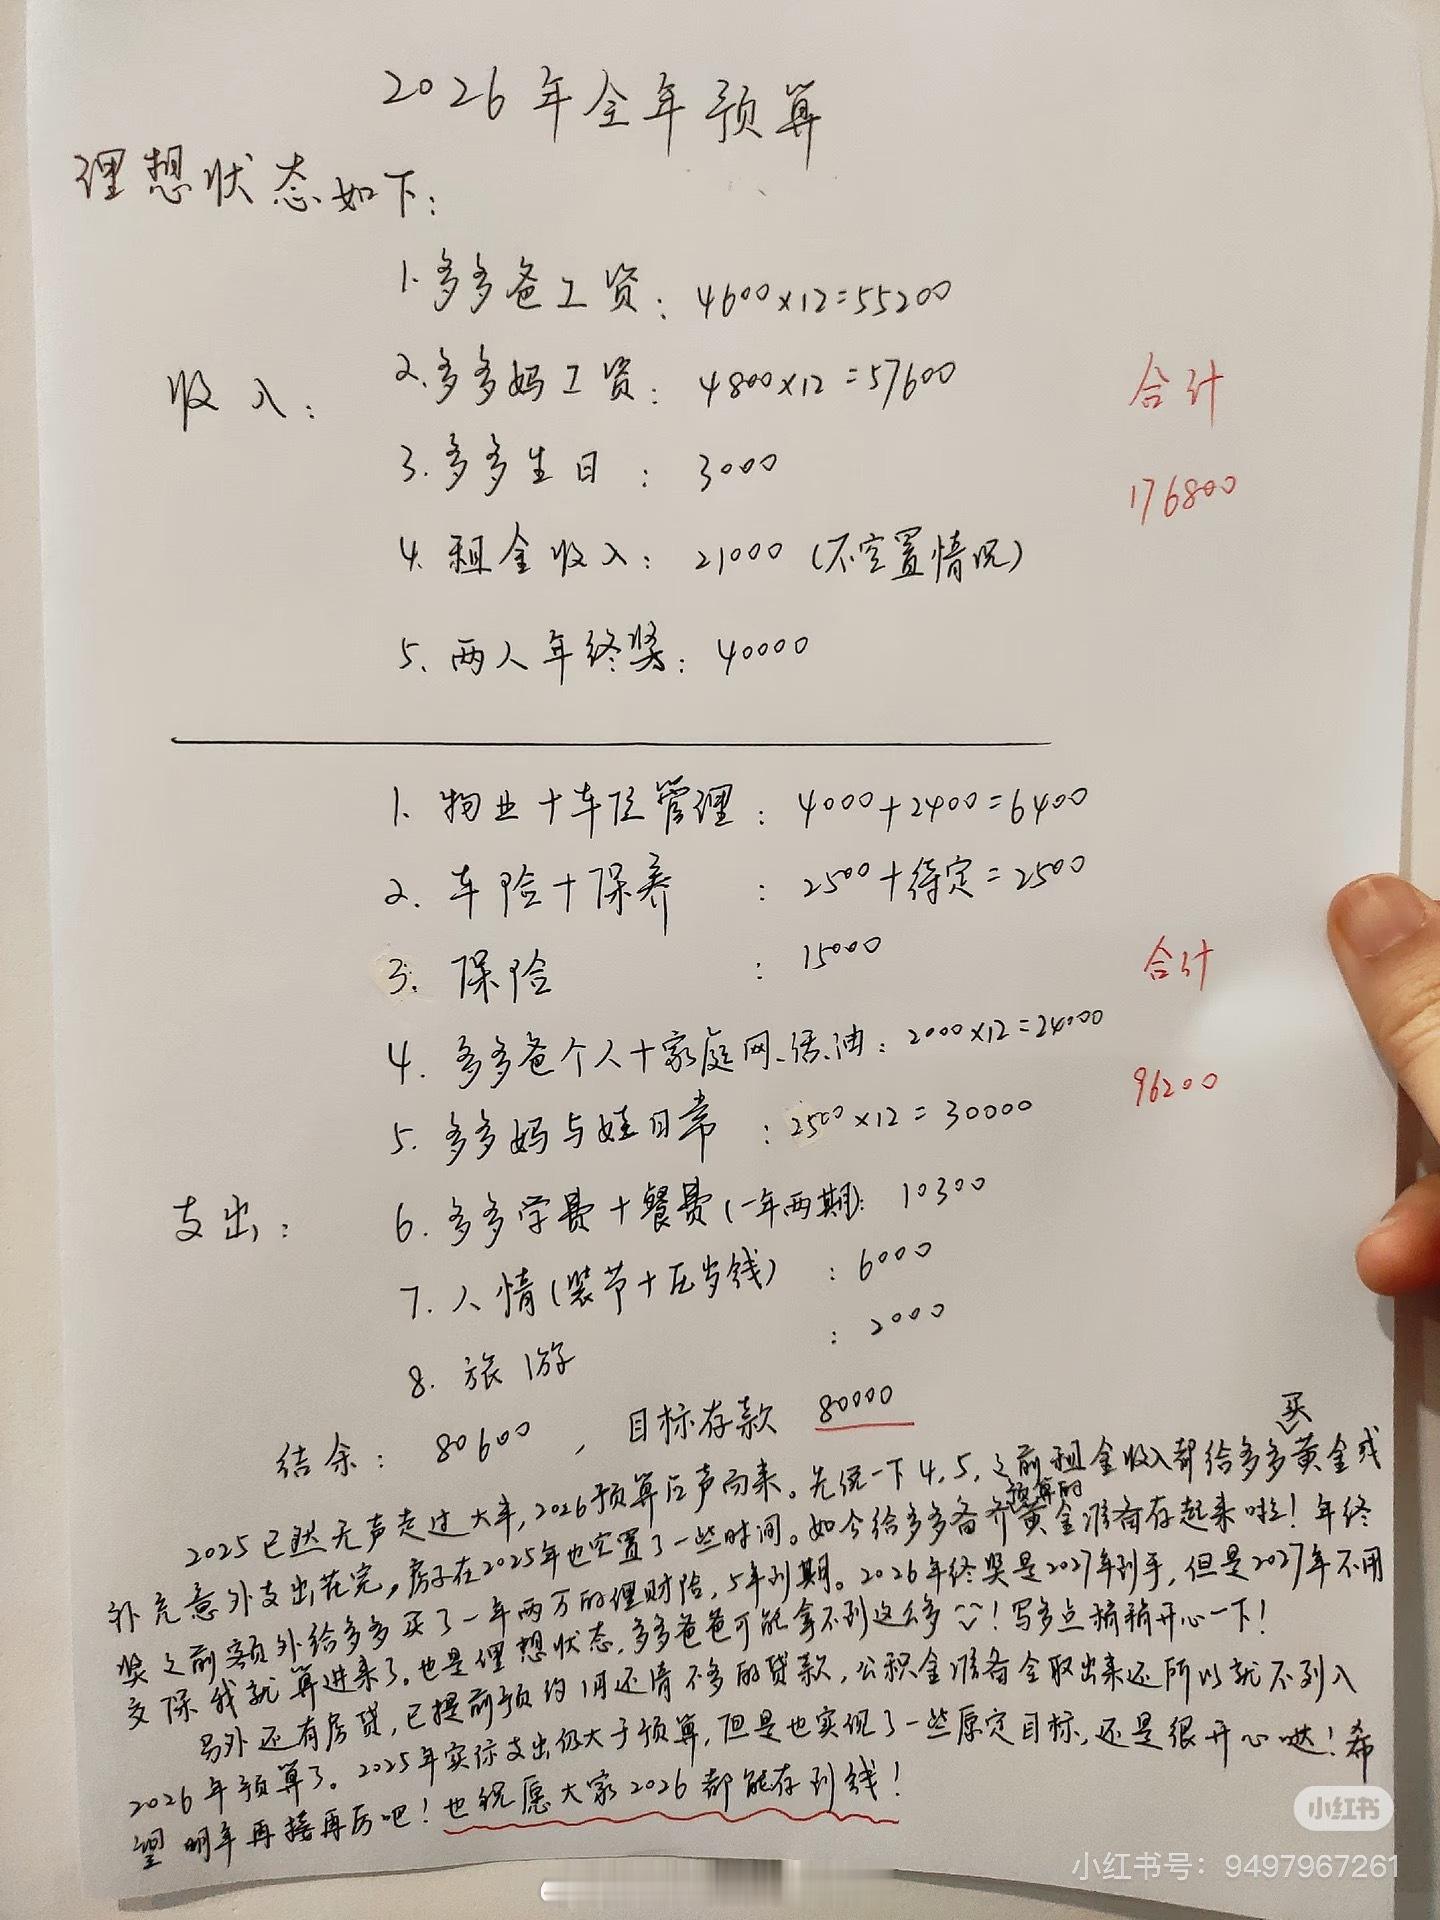 2026年全年预算
理想状态如下:
1.多多爸工资: 4600×12=55200
收入: 2.多多妈工资: 4800×12=57600
合计
3.多多生日: 3000
176800
4.租金收入: 21000 (不空置情况)
5.两人年终奖: 40000
1.物业+车位管理: 4000+2400=6400
2.车险+保养: 2500+待定=2500
3.保险: 15000
合计
4.多多爸个人+家庭网、话、油: 2000×12=24000
96200
5.多多妈与娃日常: 2500×12=30000
支出: 6.多多学费+餐费(一年两期): 10300
7.人情(装节+压岁钱): 6000
8.旅游: 2000
结余: 80600, 目标存款 80000
2025已然无声走过大半,2026预算应声而来。先说一下4,5,之前租金收入都给多多买黄金或
补充意外支出花完,房子在2025年也空置了一些时间。如今给多多备齐预算的黄金准备存起来啦!年终
奖之前额外给多多买了一年两万的理财险,5年到期。2026年终奖是2027年到手,但是2027年不用
交保我就算进来了。也是理想状态,多多爸爸可能拿不到这么多!写多点稍稍开心一下!
另外还有房贷,已提前预约1月还清不多的贷款,公积金准备全取出来还所以就不列入
2026年预算了。2025年实际支出仍大于预算,但是也实现了一些原定目标,还是很开心哒!希
望明年再接再厉吧!也祝愿大家2026都能存到钱!
小红书
小红书号:9497967261